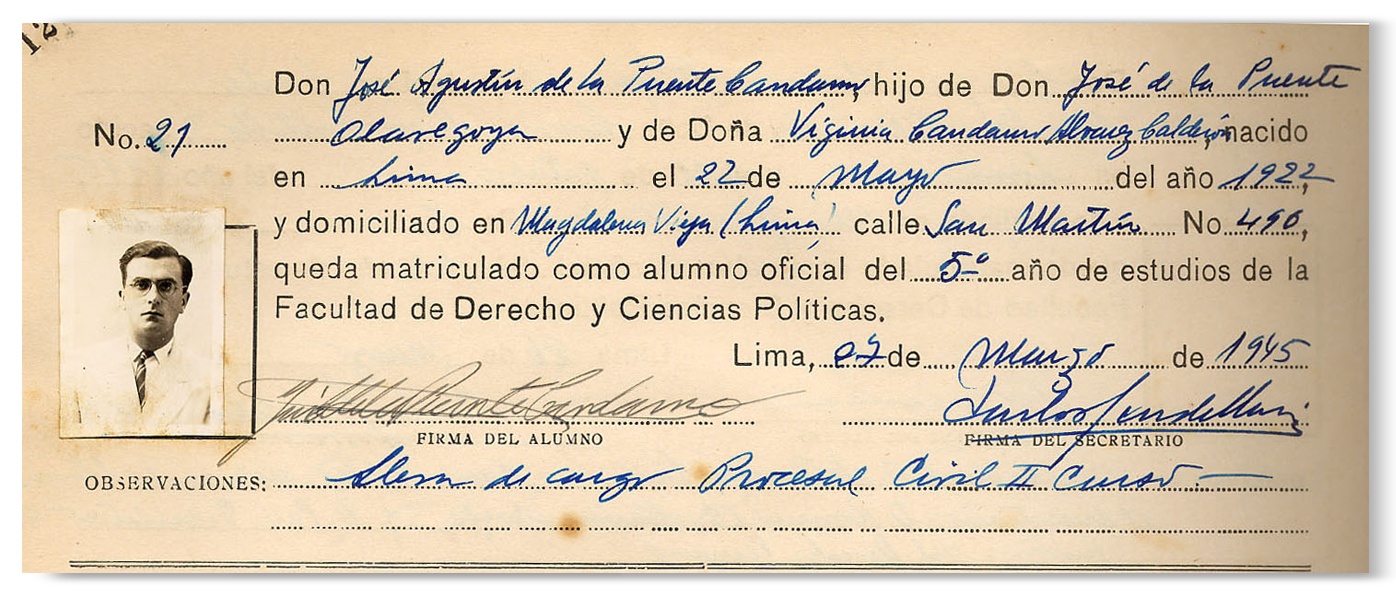 12
Don José Agustín de la Puente Candamo, hijo de Don José de la Puente
No. 21 Olavegoya y de Doña Virginia Candamo Alvarez Calderón, nacido
en Lima el 22 de Mayo del año 1922,
y domiciliado en Magdalena Vieja (Lima) calle San Martín No 490,
queda matriculado como alumno oficial del 5º año de estudios de la
Facultad de Derecho y Ciencias Políticas.
Lima, 27 de Marzo de 1945
José A de la Puente Candamo
FIRMA DEL ALUMNO FIRMA DEL SECRETARIO
OBSERVACIONES: Lleva de cargo Procesal Civil II Curso.—